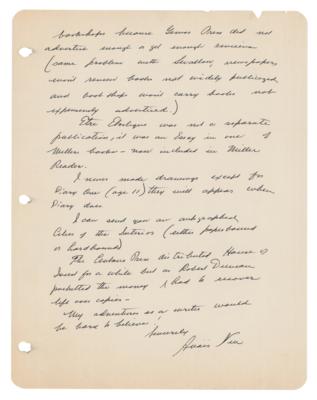 bookshops because Gemor Press did not
advertise enough or get enough reviews
(same problem with Swallow, newspapers
won't review books not widely publicized
and bookshops won't carry books not
expensively advertised.)
Etre Etoilique was not a separate
publication, it was an Essay in one of
Miller books – now included in Miller
Reader.
I never made drawings except for
Diary One (age 11) they will appear when
Diary does
I can send you an autographed
Cities of the Interior (either paperbound
or hardbound)
The Centaur Press distributed House of
Incest for a while but as Robert Duncan
pocketed the money I had to recover
left over copies –
My adventures as a writer would
be hard to believe!
Sincerely
Anaïs Nin